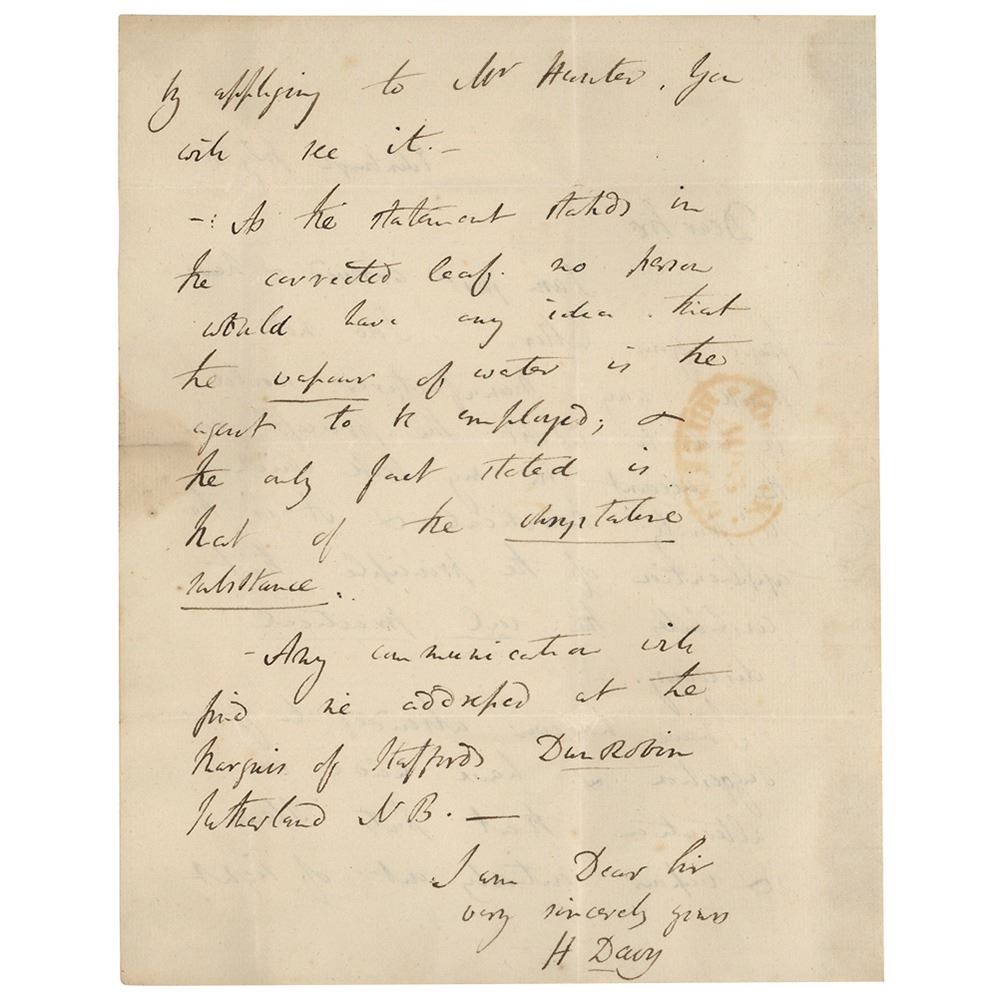 by applying to Mr Hunter, you
will see it. —
—: As the statement stands in
the corrected leaf. no person
would have any idea that
the vapour of water is the
agent to be employed; &
the only fact stated is
that of the
substance.
- Any communication will
find me addressed at the
Marquis of Staffords DunRobin
Sutherland N B. —
I am Dear Sir
very sincerely yours
H Davy